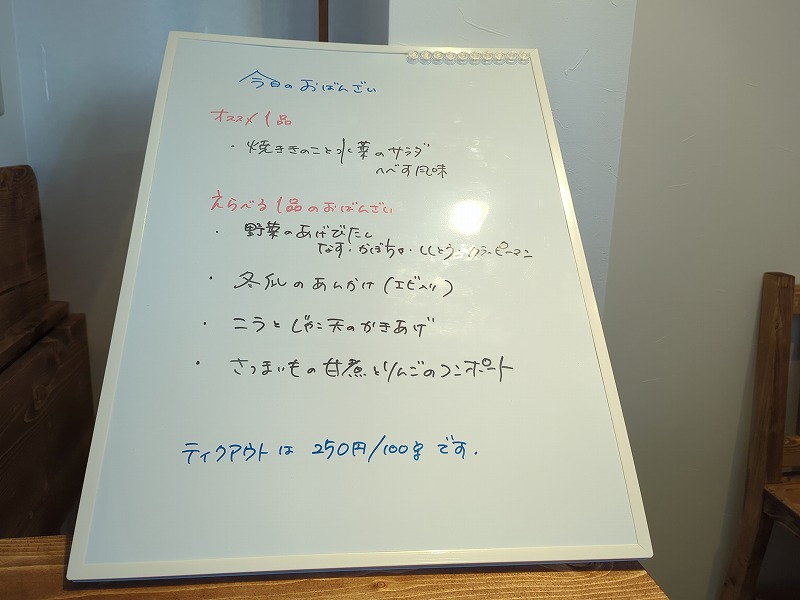 今日のおばんざい
オススメ1品
・焼ききのこと水菜のサラダ
へべす風味
えらべる1品のおばんざい
・野菜のあげびたし
なす・かぼちゃ・ししとう・カラーピーマン
・冬瓜のあんかけ(エビ入り)
・ニラとじゃこ天のかきあげ
・さつまいもの甘煮とりんごのコンポート
ティクアウトは 250円/100g です.